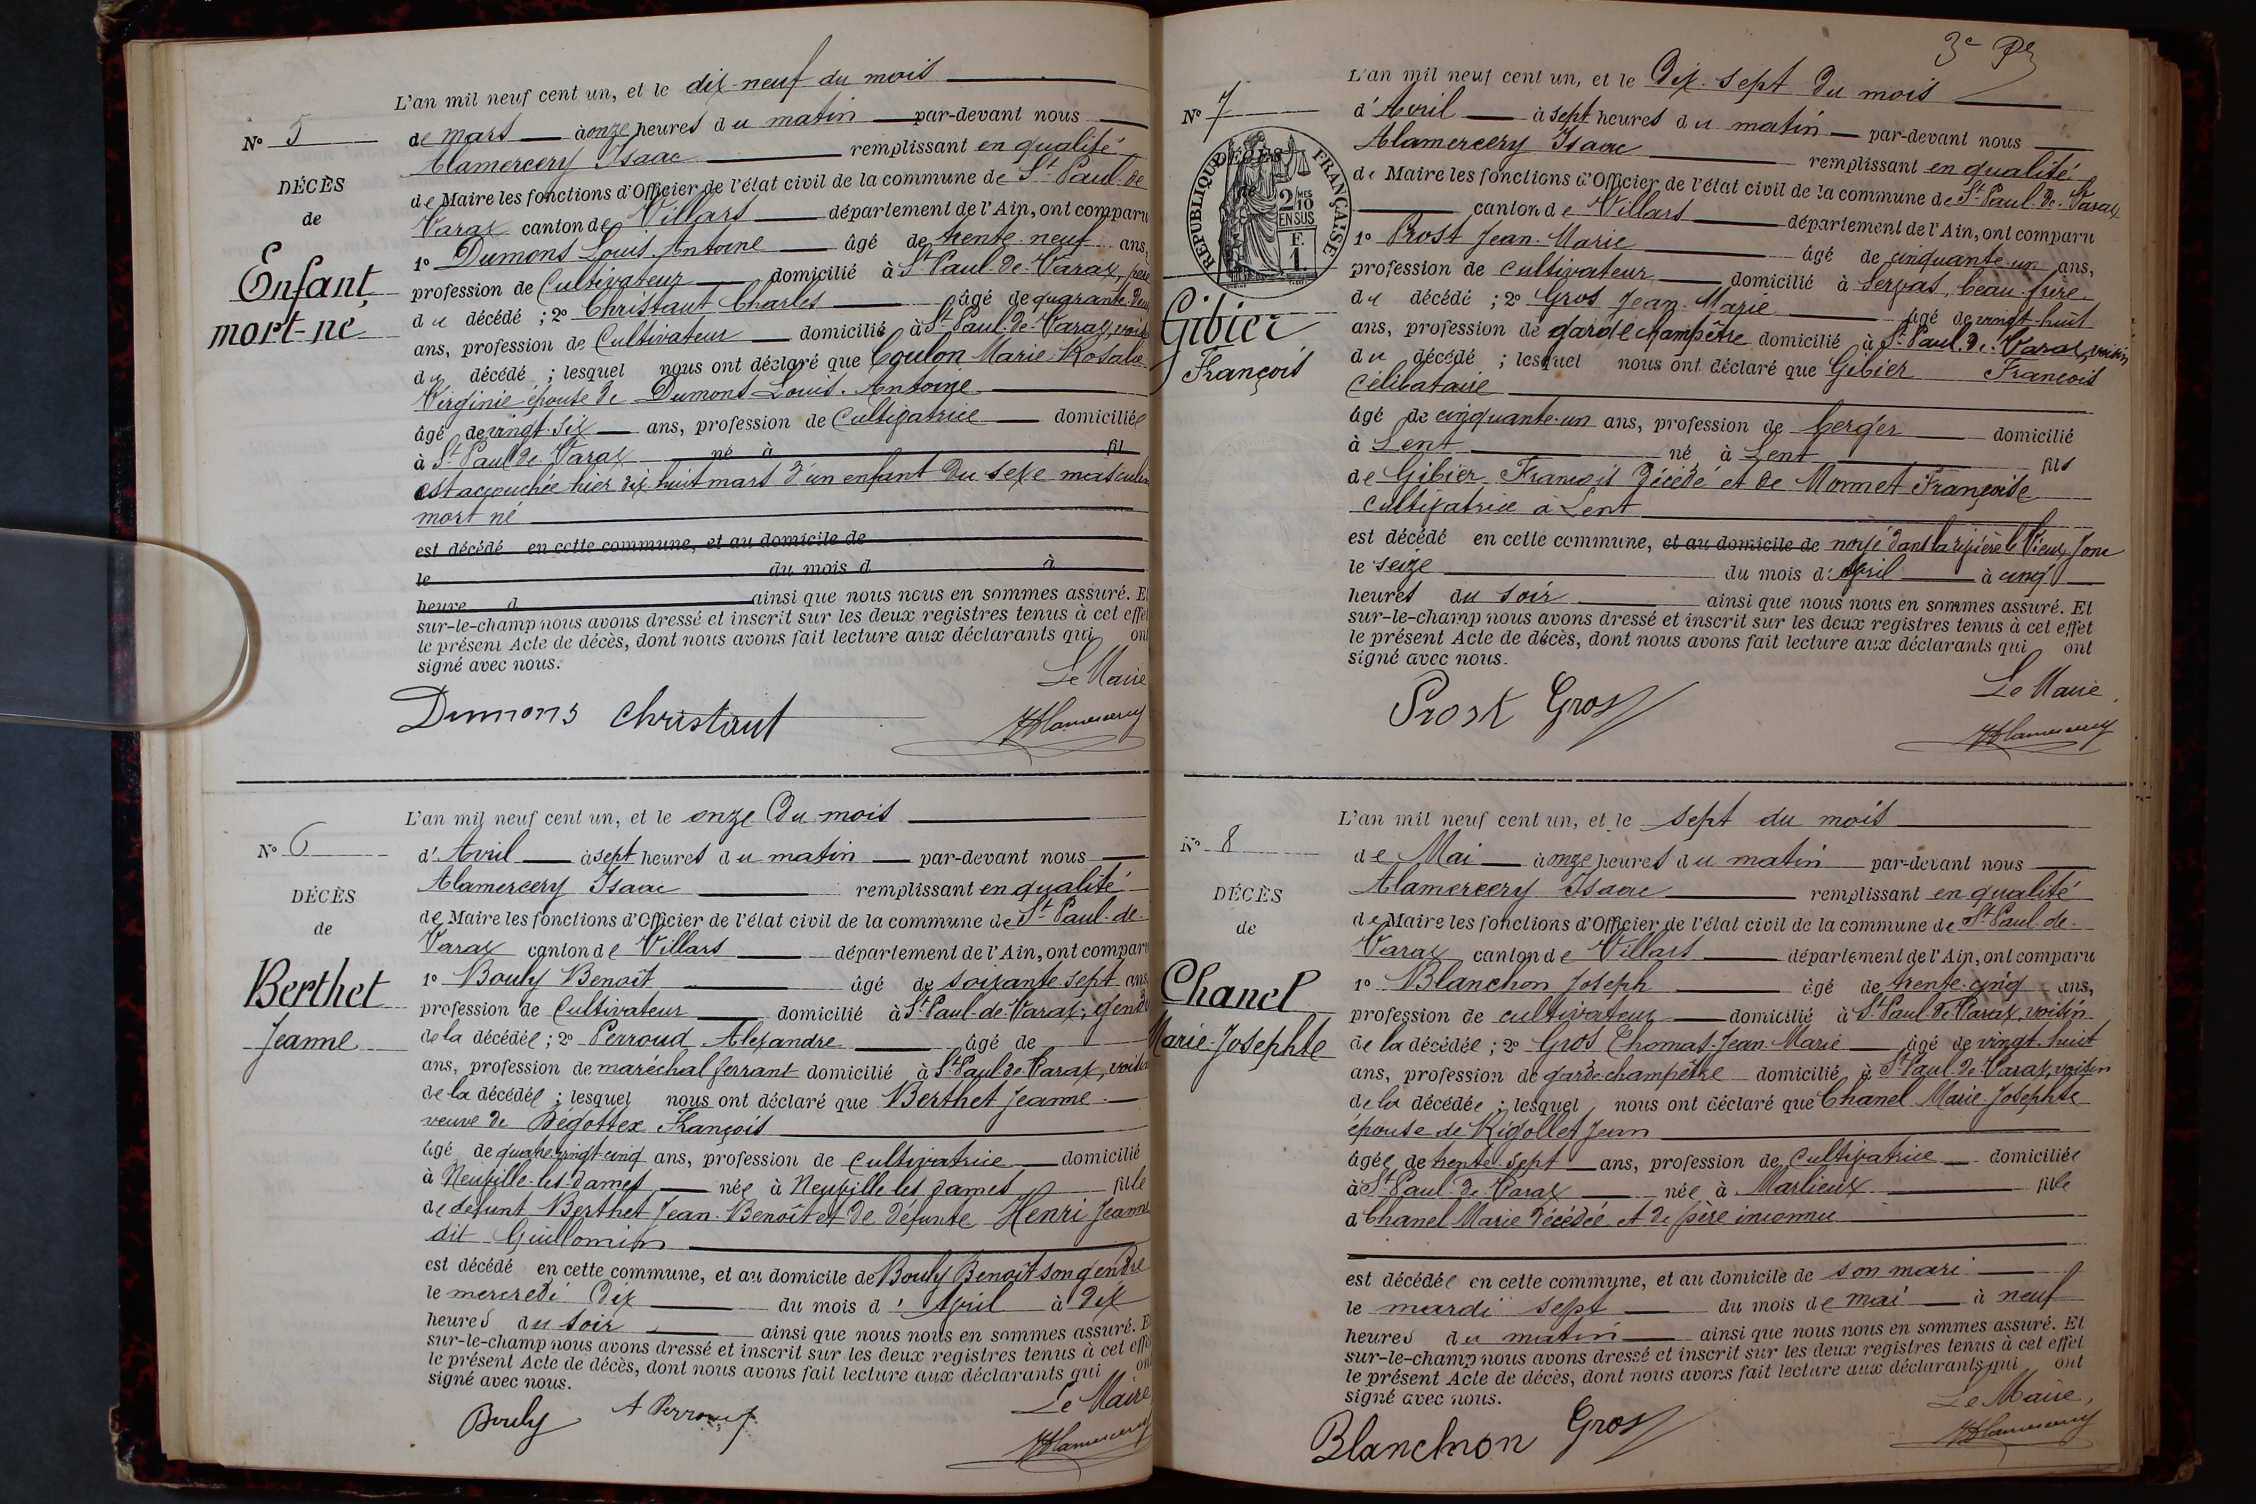 L'an mil neuf cent un, et le dix-neuf du mois
N° 5
de mars à onze heures du matin par-devant nous
Alamercery Isaac remplissant en qualité
DÉCÈS
de Maire les fonctions d'Officier de l'état civil de la commune de St Paul de
de
Varax canton de Villars département de l'Ain, ont comparu
1° Dumons Louis Antoine âgé de trente neuf ans,
Enfant
mort-né
profession de Cultivateur domicilié à St Paul-de-Varax, père
du décédé ; 2° Christaut Charles âgé de quarante deux
ans, profession de Cultivateur domicilié à St Paul-de-Varax, voisin
du décédé ; lesquel nous ont déclaré que Coulon Marie Rosalie
Virginie épouse de Dumons Louis Antoine
âgé de vingt-six ans, profession de Cultivatrice domiciliée
à St Paul de Varax né à fil
est accouchée hier dix huit mars d'un enfant du sexe masculin
mort né
est décédé en cette commune, et au domicile de
le du mois d à
heure d ainsi que nous nous en sommes assuré. Et
sur-le-champ nous avons dressé et inscrit sur les deux registres tenus à cet effet
le présent Acte de décès, dont nous avons fait lecture aux déclarants qui ont
signé avec nous.
Le Maire
Dumons Christaut
Alamercery
L'an mil neuf cent un, et le onze du mois
N° 6
d'Avril à sept heures du matin par-devant nous
Alamercery Isaac remplissant en qualité
DÉCÈS
de Maire les fonctions d'Officier de l'état civil de la commune de St Paul-de-
de
Varax canton de Villars département de l'Ain, ont comparu
Berthet
Jeanne
1° Bouly Benoît âgé de soixante sept ans
profession de Cultivateur domicilié à St Paul-de-Varax, gendre
de la décédée ; 2° Perroud Alexandre âgé de
ans, profession de maréchal ferrant domicilié à St Paul de Varax, voisin
de la décédée ; lesquel nous ont déclaré que Berthet Jeanne
veuve de Bégottex François
âgé de quatre vingt cinq ans, profession de Cultivatrice domicilié
à Neuville-les-dames née à Neuville les dames fille
de défunt Berthet Jean-Benoît et de défunte Henri Jeanne
dit Guillomin
est décédé en cette commune, et au domicile de Bouly Benoît son gendre
le mercredi dix du mois d'Avril à dix
heures du soir ainsi que nous nous en sommes assuré. E
sur-le-champ nous avons dressé et inscrit sur les deux registres tenus à cet effet
le présent Acte de décès, dont nous avons fait lecture aux déclarants qui ont
signé avec nous.
Le Maire
Bouly A Perroud
Alamercery
3e
L'an mil neuf cent un, et le Dix-sept du mois
N° 7
d'Avril à sept heures du matin par-devant nous
Alamercery Isaac remplissant en qualité
RÉPUBLIQUE FRANÇAISE
DÉCÈS
de
2 MES
10
EN SUS
F.
1
de Maire les fonctions d'Officier de l'état civil de la commune de St Paul-de-Varax
canton de Villars département de l'Ain, ont comparu
Gibier
François
1° Prost Jean-Marie âgé de cinquante-un ans,
profession de cultivateur domicilié à Servas, beau-frère
du décédé ; 2° Gros Jean-Marie âgé de vingt-huit
ans, profession de garde champêtre domicilié à St Paul-de-Varax, voisin
du décédé ; lesquel nous ont déclaré que Gibier François
célibataire
âgé de cinquante-un ans, profession de berger domicilié
à Lent né à Lent fils
de Gibier François décédé et de Monnet Françoise
cultivatrice à Lent
est décédé en cette commune, et au domicile de noyé dans la rivière le Vieux Jonc
le seize du mois d'Avril à cinq
heures du soir ainsi que nous nous en sommes assuré. Et
sur-le-champ nous avons dressé et inscrit sur les deux registres tenus à cet effet
le présent Acte de décès, dont nous avons fait lecture aux déclarants qui ont
signé avec nous.
Le Maire
Prost Gros
Alamercery
L'an mil neuf cent un, et le sept du mois
N° 8
de Mai à onze heures du matin par-devant nous
Alamercery Isaac remplissant en qualité
DÉCÈS
de Maire les fonctions d'Officier de l'état civil de la commune de St Paul-de-
de
Varax canton de Villars département de l'Ain, ont comparu
Chanel
Marie-Josephte
1° Blanchon Joseph âgé de trente-cinq ans,
profession de cultivateur domicilié à St Paul-de-Varax, voisin
de la décédée ; 2° Gros Thomas-Jean-Marie âgé de vingt-huit
ans, profession de garde champêtre domicilié à St Paul-de-Varax, voisin
de la décédée ; lesquel nous ont déclaré que Chanel Marie-Josephte
épouse de Rigollet Jean
âgée de trente-sept ans, profession de Cultivatrice domiciliée
à St Paul-de-Varax née à Marlieux fille
d Chanel Marie décédée et de père inconnu
est décédée en cette commune, et au domicile de son mari
le mardi sept du mois de mai à neuf
heures du matin ainsi que nous nous en sommes assuré. Et
sur-le-champ nous avons dressé et inscrit sur les deux registres tenus à cet effet
le présent Acte de décès, dont nous avons fait lecture aux déclarants qui ont
signé avec nous.
Le Maire,
Blanchon Gros
Alamercery